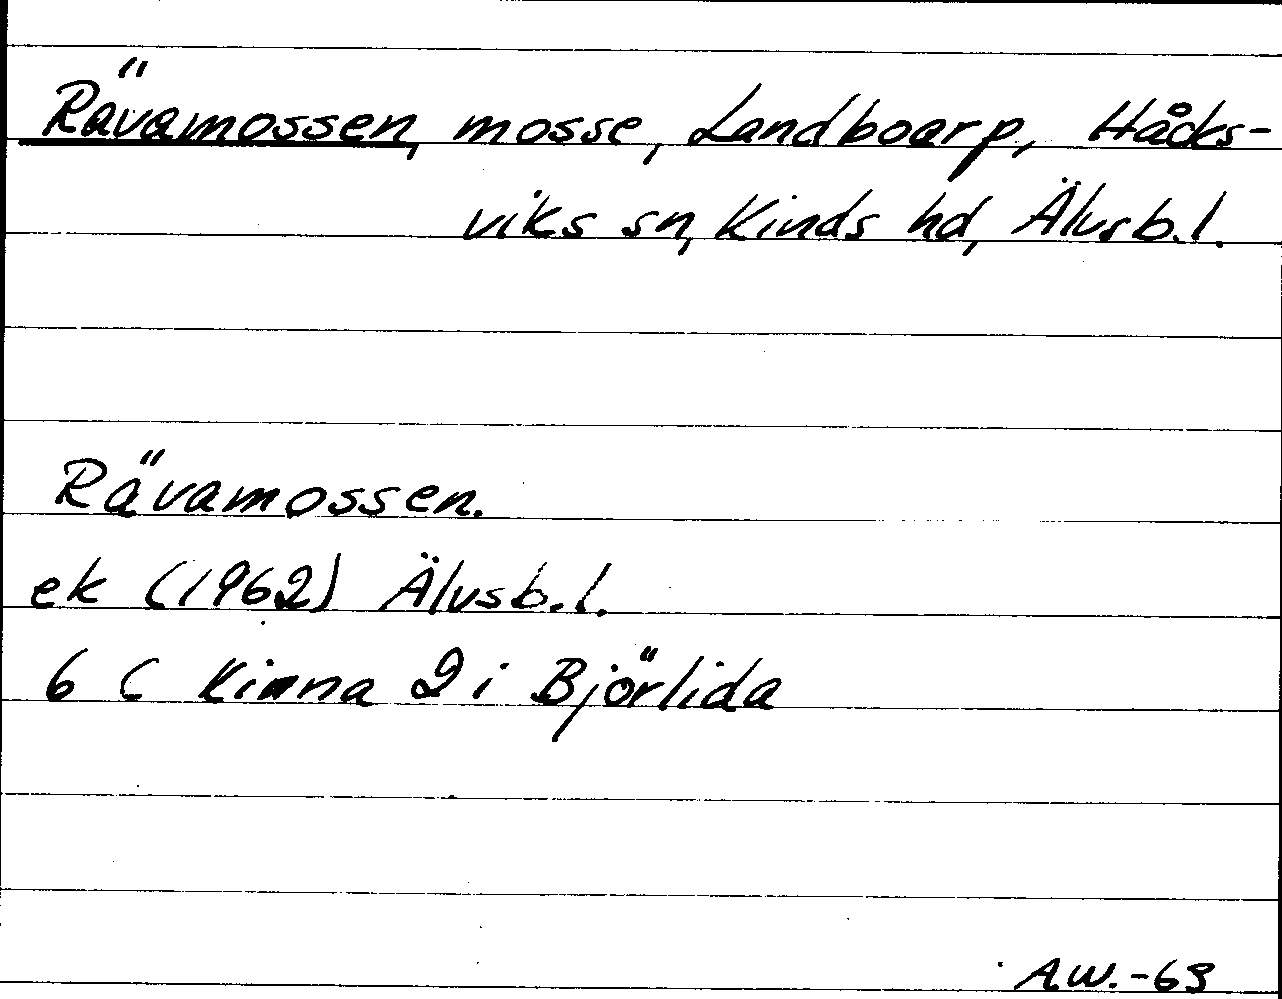 Rävamossen, mosse, Landboarp, Håcks-
viks sn, Kinds hd, Älvsb.l.
Rävamossen.
ek (1962) Älvsb.l.
6 C Kinna 2 i Björlida
A.W.-63